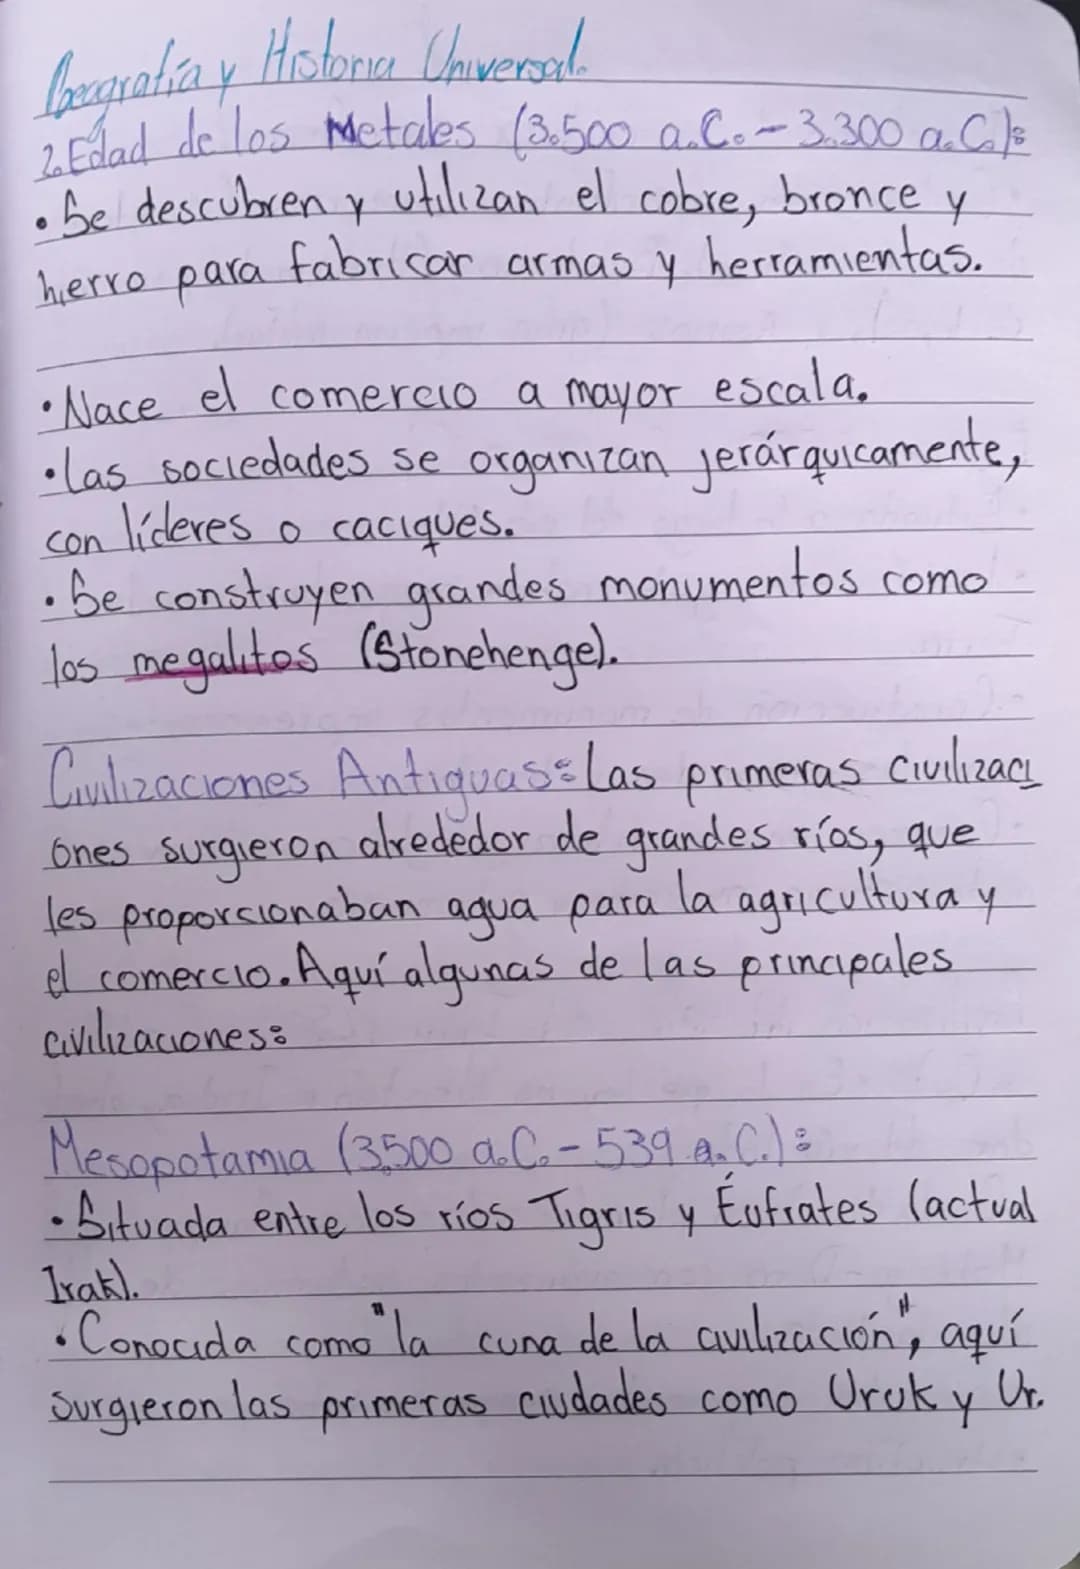 Geografía y Historia Universal.
2. Edad de los Metales (3.500 a.C. - 3.300 a.C.):
• Se descubren y utilizan el cobre, bronce y
hierro para fabricar armas y herramientas.
• Nace el comercio a mayor escala.
• Las sociedades se organizan jerárquicamente,
con líderes o caciques.
• Se construyen grandes monumentos como
los megalitos (Stonehenge).
Civilizaciones Antiguas: Las primeras civilizaci
ones surgieron alrededor de grandes ríos, que
les proporcionaban agua para la agricultura y
el comercio. Aquí algunas de las principales
civilizaciones:
Mesopotamia (3,500 a.C. - 539 a.C.):
• Situada entre los ríos Tigris y Éufrates (actual
Irak).
• Conocida como "la cuna de la civilización", aquí
surgieron las primeras ciudades como Uruk y Ur.